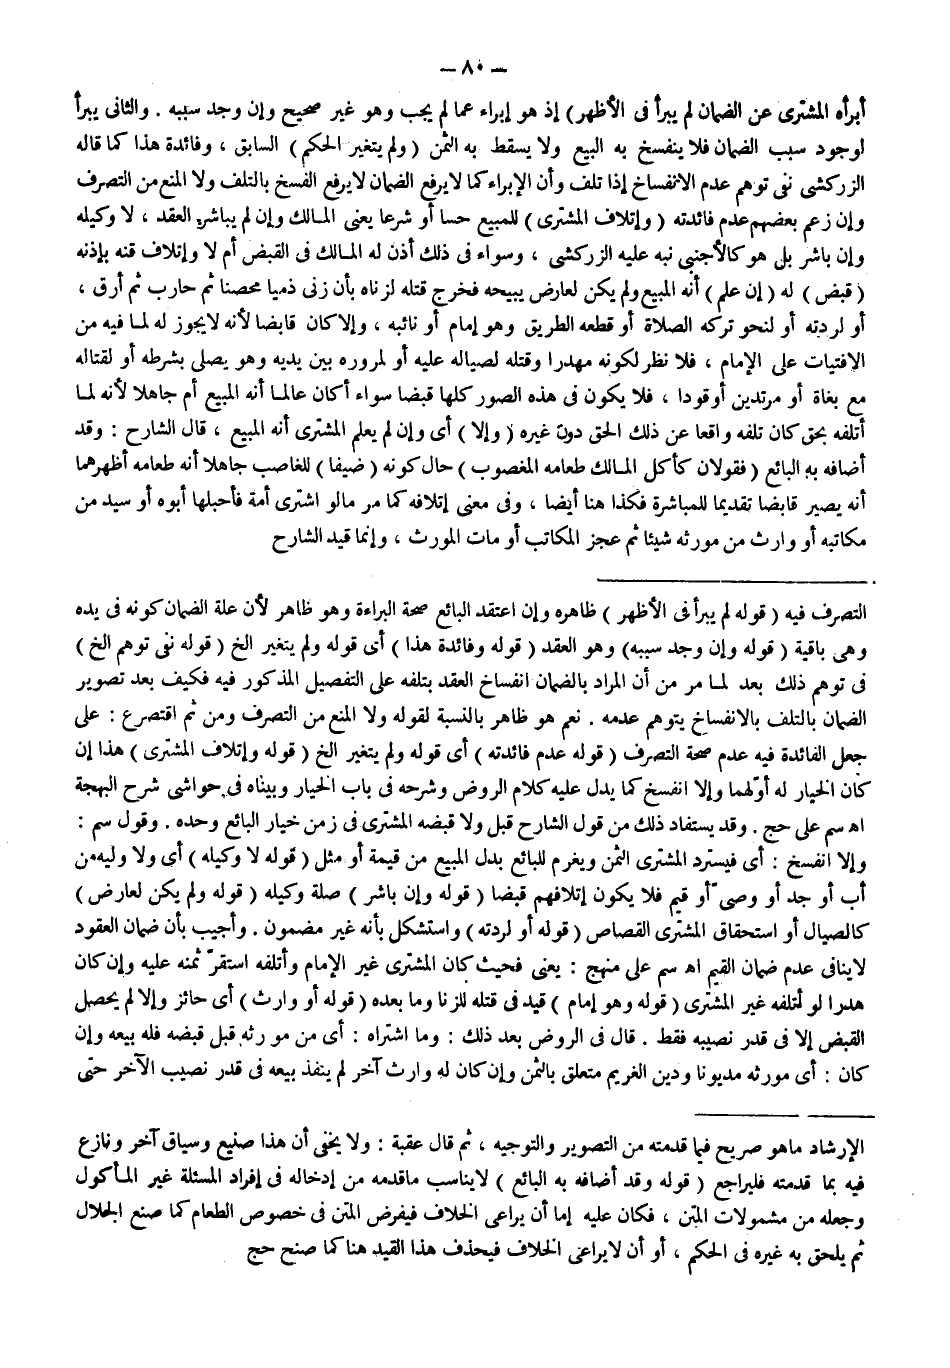 — ٨٠ —
أبرأه المشترى عن الضمان لم يبرأ فى الأظهر) إذ هو إبراء عما لم يجب وهو غير صحيح وإن وجد سببه . والثانى يبرأ
لوجود سبب الضمان فلا ينفسخ به البيع ولا يسقط به الثمن (ولم يتغير الحكم) السابق ، وفائدة هذا كما قاله
الزركشى نفى توهم عدم الانفساخ إذا تلف وأن الإبراء كما لا يرفع الضمان لا يرفع الفسخ بالتلف ولا المنع من التصرف
وإن زعم بعضهم عدم فائدته (وإتلاف المشترى) للمبيع حسا أو شرعا يعنى المالك وإن لم يباشر العقد ، لا وكيله
وإن باشر بل هو كالأجنبى نبه عليه الزركشى ، وسواء فى ذلك أذن له المالك فى القبض أم لا وإتلاف قنه بإذنه
(قبض) له (إن علم) أنه المبيع ولم يكن لعارض يبيحه فخرج قتله لزناه بأن زنى ذميا محصنا ثم حارب ثم أرق ،
أو لردته أو لنحو تركه الصلاة أو قطعه الطريق وهو إمام أو نائبه ، وإلا كان قابضا لأنه لا يجوز له لما فيه من
الافتيات على الإمام ، فلا نظر لكونه مهدرا وقتله لصياله عليه أو لمروره بين يديه وهو يصلى بشرطه أو لقتاله
مع بغاة أو مرتدين أو قودا ، فلا يكون فى هذه الصور كلها قبضا سواء أكان عالما أنه المبيع أم جاهلا لأنه لما
أتلفه بحق كان تلفه واقعا عن ذلك الحق دون غيره (وإلا) أى وإن لم يعلم المشترى أنه المبيع ، قال الشارح : وقد
أضافه به البائع (فقولان كأكل المالك طعامه المغصوب) حال كونه (ضيفا) للغاصب جاهلا أنه طعامه أظهرهما
أنه يصير قابضا تقديما للمباشرة فكذا هنا أيضا ، وفى معنى إتلافه كما مر مالو اشترى أمة فأحبلها أبوه أو سيد من
مكاتبه أو وارث من مورثه شيئا ثم عجز المكاتب أو مات المورث ، وإنما قيد الشارح
التصرف فيه (قوله لم يبرأ فى الأظهر) ظاهره وإن اعتقد البائع صحة البراءة وهو ظاهر لأن علة الضمان كونه فى يده
وهى باقية (قوله وإن وجد سببه) وهو العقد (قوله وفائدة هذا) أى قوله ولم يتغير الخ (قوله نفى توهم الخ)
فى توهم ذلك بعد لما مر من أن المراد بالضمان انفساخ العقد بتلفه على التفصيل المذكور فيه فكيف بعد تصوير
الضمان بالتلف بالانفساخ يتوهم عدمه . نعم هو ظاهر بالنسبة لقوله ولا المنع من التصرف ومن ثم اقتصر ع : على
جعل الفائدة فيه عدم صحة التصرف (قوله عدم فائدته) أى قوله ولم يتغير الخ (قوله وإتلاف المشترى) هذا إن
كان الخيار له أو لهما وإلا انفسخ كما يدل عليه كلام الروض وشرحه فى باب الخيار وبيناه فى حواشى شرح البهجة
اه سم على حج . وقد يستفاد ذلك من قول الشارح قبل ولا قبضه المشترى فى زمن خيار البائع وحده . وقول سم :
وإلا انفسخ : أى فيسترد المشترى الثمن ويغرم للبائع بدل المبيع من قيمة أو مثل (قوله لا وكيله) أى ولا وليه من
أب أو جد أو وصى أو قيم فلا يكون إتلافهم قبضا (قوله وإن باشر) صلة وكيله (قوله ولم يكن لعارض)
كالصيال أو استحقاق المشترى القصاص (قوله أو لردته) واستشكل بأنه غير مضمون . وأجيب بأن ضمان العقود
لا ينافى عدم ضمان القيم اه سم على منهج : يعنى فحيث كان المشترى غير الإمام وأتلفه استقر ثمنه عليه وإن كان
هدرا لو أتلفه غير المشترى (قوله وهو إمام) قيد فى قتله للزنا وما بعده (قوله أو وارث) أى حائز وإلا لم يحصل
القبض إلا فى قدر نصيبه فقط . قال فى الروض بعد ذلك : وما اشتراه : أى من مورثه قبل قبضه فله بيعه وإن
كان : أى مورثه مديونا ودين الغريم متعلق بالثمن وإن كان له وارث آخر لم ينفذ بيعه فى قدر نصيب الآخر حتى
الإرشاد ماهو صريح فيما قدمته من التصوير والتوجيه ، ثم قال عقبة : ولا يخفى أن هذا صنيع وسياق آخر ونازع
فيه بما قدمته فليراجع (قوله وقد أضافه به البائع) لا يناسب ماقدمه من إدخاله فى إفراد المسئلة غير المأكول
وجعله من مشمولات المتن ، فكان عليه إما أن يراعى الخلاف فيفرض المتن فى خصوص الطعام كما صنع الجلال
ثم يلحق به غيره فى الحكم ، أو أن لا يراعى الخلاف فيحذف هذا القيد هنا كما صنح حج